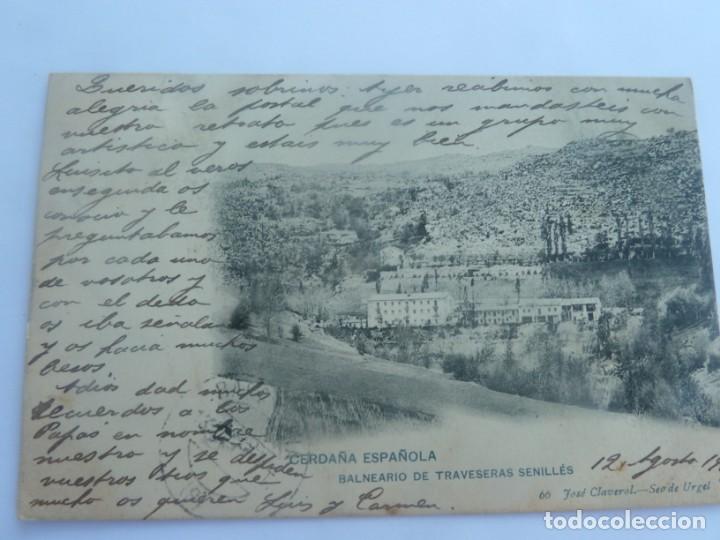 Queridos sobrinos: Ayer recibimos con mucha
alegria la postal que nos mandasteis con
vuestro retrato pues es un grupo muy
artistico y estais muy bien
Luisito al veros
enseguida os
conocio y le
preguntabamos
por cada uno
de vosotros y
con el dedo
os iba señalan
y os hacia muchos
besos.
Adiós dad mucho
recuerdos a los
Papás en nombre
nuestro y se despiden
vuestros tios que
mucho os quieren Luis y Carmen.
CERDAÑA ESPAÑOLA
BALNEARIO DE TRAVESERAS SENILLÉS
12 Agosto 19
66 José Claverol.—Seo de Urgel
todocoleccion.net